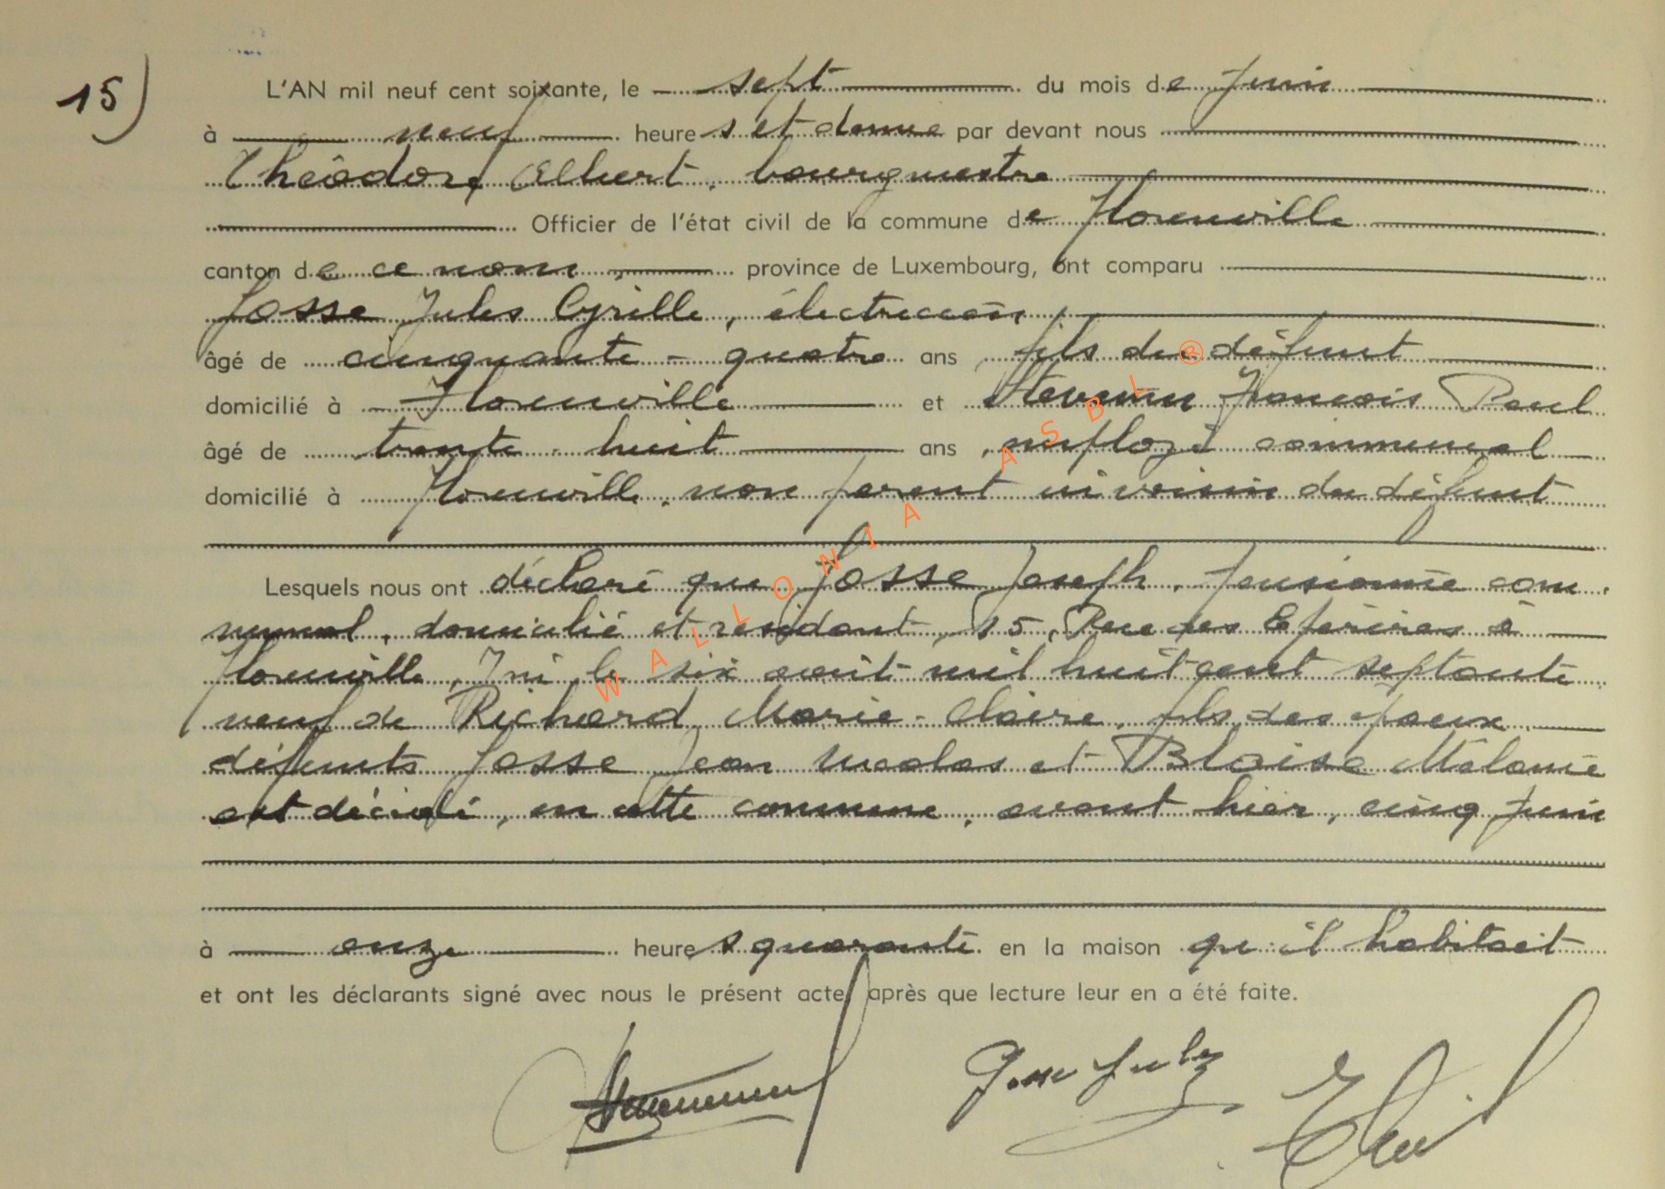 15)
L'AN mil neuf cent soixante, le sept du mois de Juin
à neuf heures et demie par devant nous
Théodore Albert, bourgmestre
Officier de l'état civil de la commune de Florenville
canton de ce nom, province de Luxembourg, ont comparu
Josse Jules Cyrille, électricien,
âgé de cinquante-quatre ans, fils du défunt
domicilié à Florenville et François Paul
âgé de trente-huit ans, employé communal
domicilié à Florenville, non parent ni voisin du défunt
Lesquels nous ont déclaré que Josse Joseph, pensionné com
munal, domicilié et résidant, 15, Rue des Epérires à
Florenville, Né le six août mil huit cent septante
neuf de Richard Marie-Claire, fils des époux
défunts Josse Jean Nicolas et Blaise Mélanie
est décédé, en cette commune, avant hier, cinq juin
à onze heures quarante en la maison qu'il habitait
et ont les déclarants signé avec nous le présent acte, après que lecture leur en a été faite.
Josse Jules
WALLONIA ASBL ®